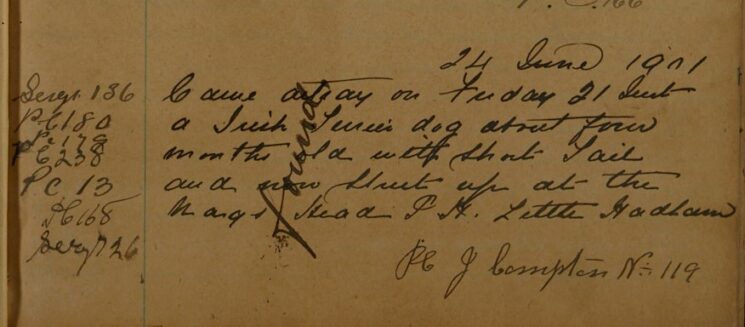 P.C.166
24 June 1901
Sergt 136
PC 180
Pc 179
PC 238
PC 13
PC 168
Sergt 26
Came astray on Friday 21 Inst
a Irish Terrier dog about four
months old with Short Tail
and now Shut up at the
Nags Head P.H. Little Hadham
Found
PC J Compton No 119